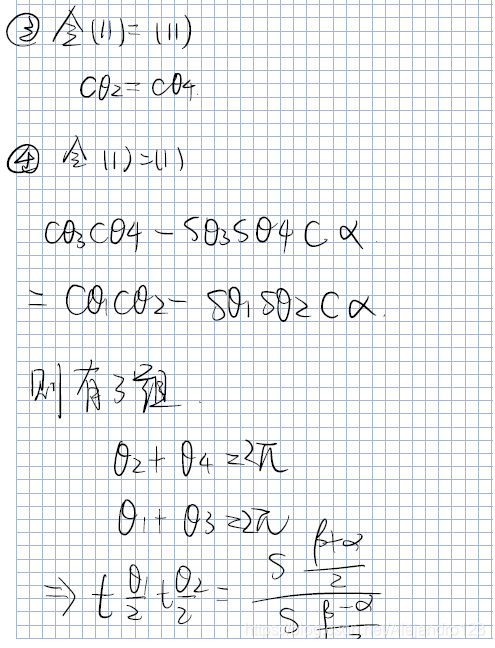 ③ 令(11)=(11)
cθ₂=cθ₄.
④ 令(1)=(1)
cθ₃cθ₄-sθ₃sθ₄cα
=cθ₁cθ₂-sθ₁sθ₂cα.
则有3组.
θ₂+θ₄=2π
θ₁+θ₃=2π
⇒ t θ₁/2 t θ₂/2 = s (β+α)/2 / s (β-α)/2